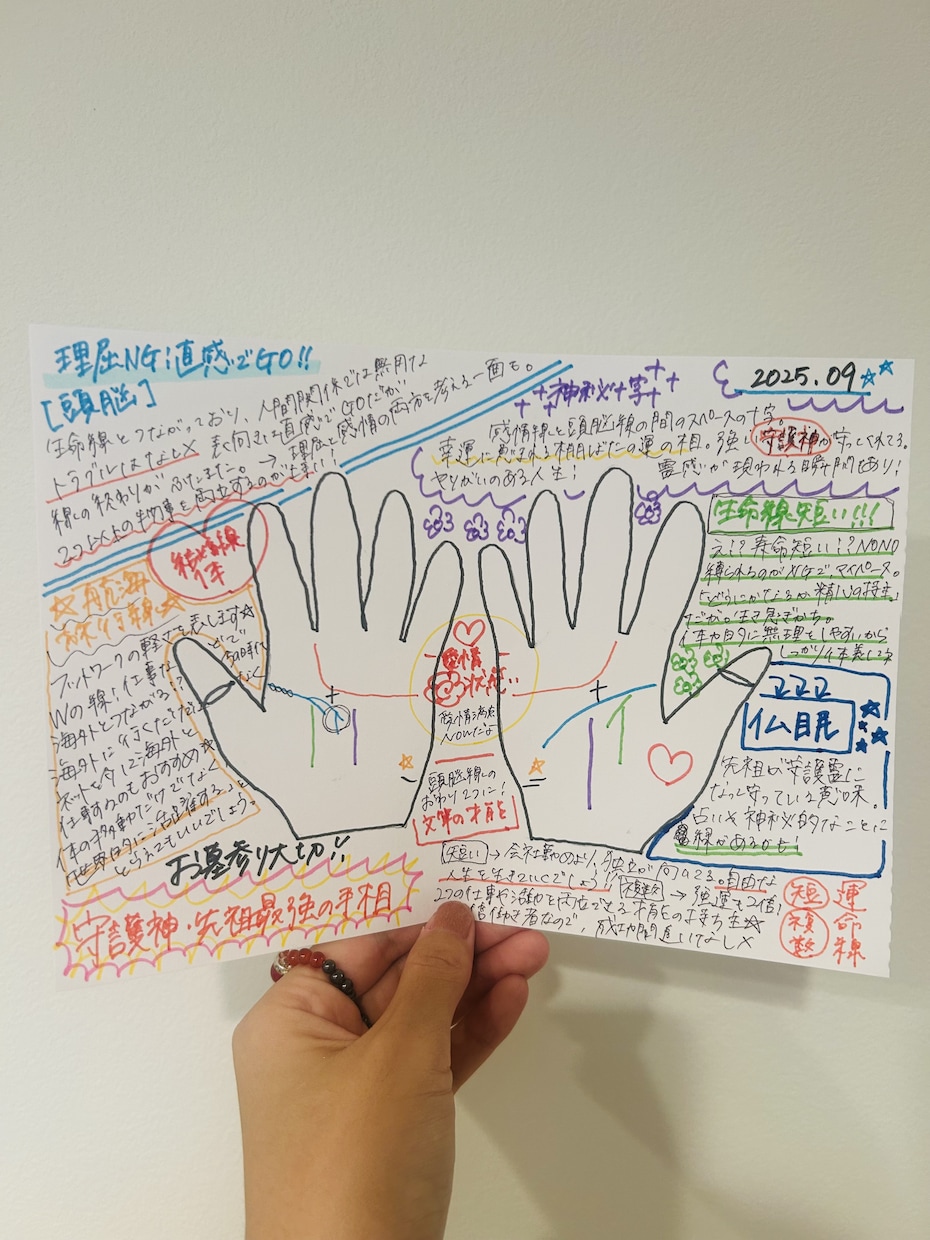 理屈NG!直感でGO!!
[頭脳]
生命線とつながっており、人間関係では無用な
トラブルはなし×
表向きは直感でGOだが
→理屈と感情の両方を考える一面も。
線の終わりがふたまた。
2つ以上の物事を両立するのが上手い!
結婚線
1本
☆航海
線☆
フットワークの軽さを表します☆
Wの線!仕事などで
海外とつながる!?
海外に行きたくなく
ネットを介し海外と
仕事するのもおすすめ☆
体の移動だけでなく
世界的に活躍する。と
とらえてもいいでしょう。
お墓参り大切!!
守護神・先祖最強の手相
2025.09
神秘十字
感情線と頭脳線の間のスペースの十字。
幸運に恵まれる相
運の相。強い守護神が守ってくれてる。
やりがいのある人生!
霊感が現われる瞬間あり!
生命線短い!!!
え!?寿命短い!?NONO
縛られるのがNGで、マイペース。
どうにかなるが精神の持主。
体力
無理をしやすいから
しっかり休養してネ
仏眼
先祖が守護霊に
なって守っている意味。
占いや神秘的なことに
縁があるかも!
愛情
状態
愛情満点
NOWだよ
頭脳線の
おわり2つに!
文筆の才能も
短い→会社勤めより、独立が向いてる。自由な
人生を生きていいでしょう!!
複数→強運も2倍!
2つの仕事や活動を両立できる才能の持ち主☆
働き者なので、成功間違いなし×
運命線
短
複数